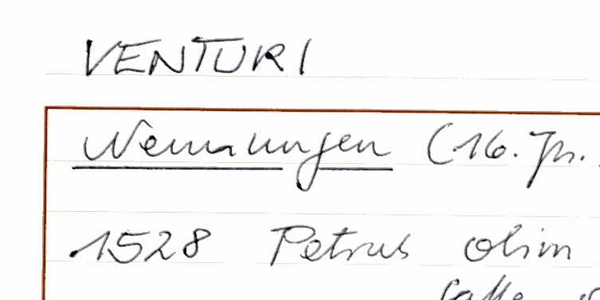 VENTURI
Nennungen (16. Jh.
1528 Petrus olim